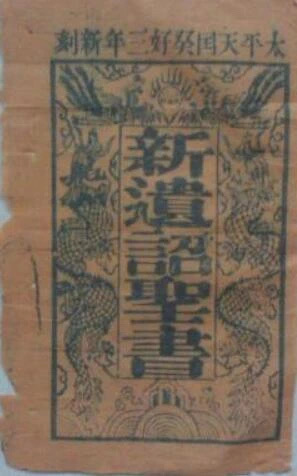 太平天囯癸好三年新刻
新遺詔聖書